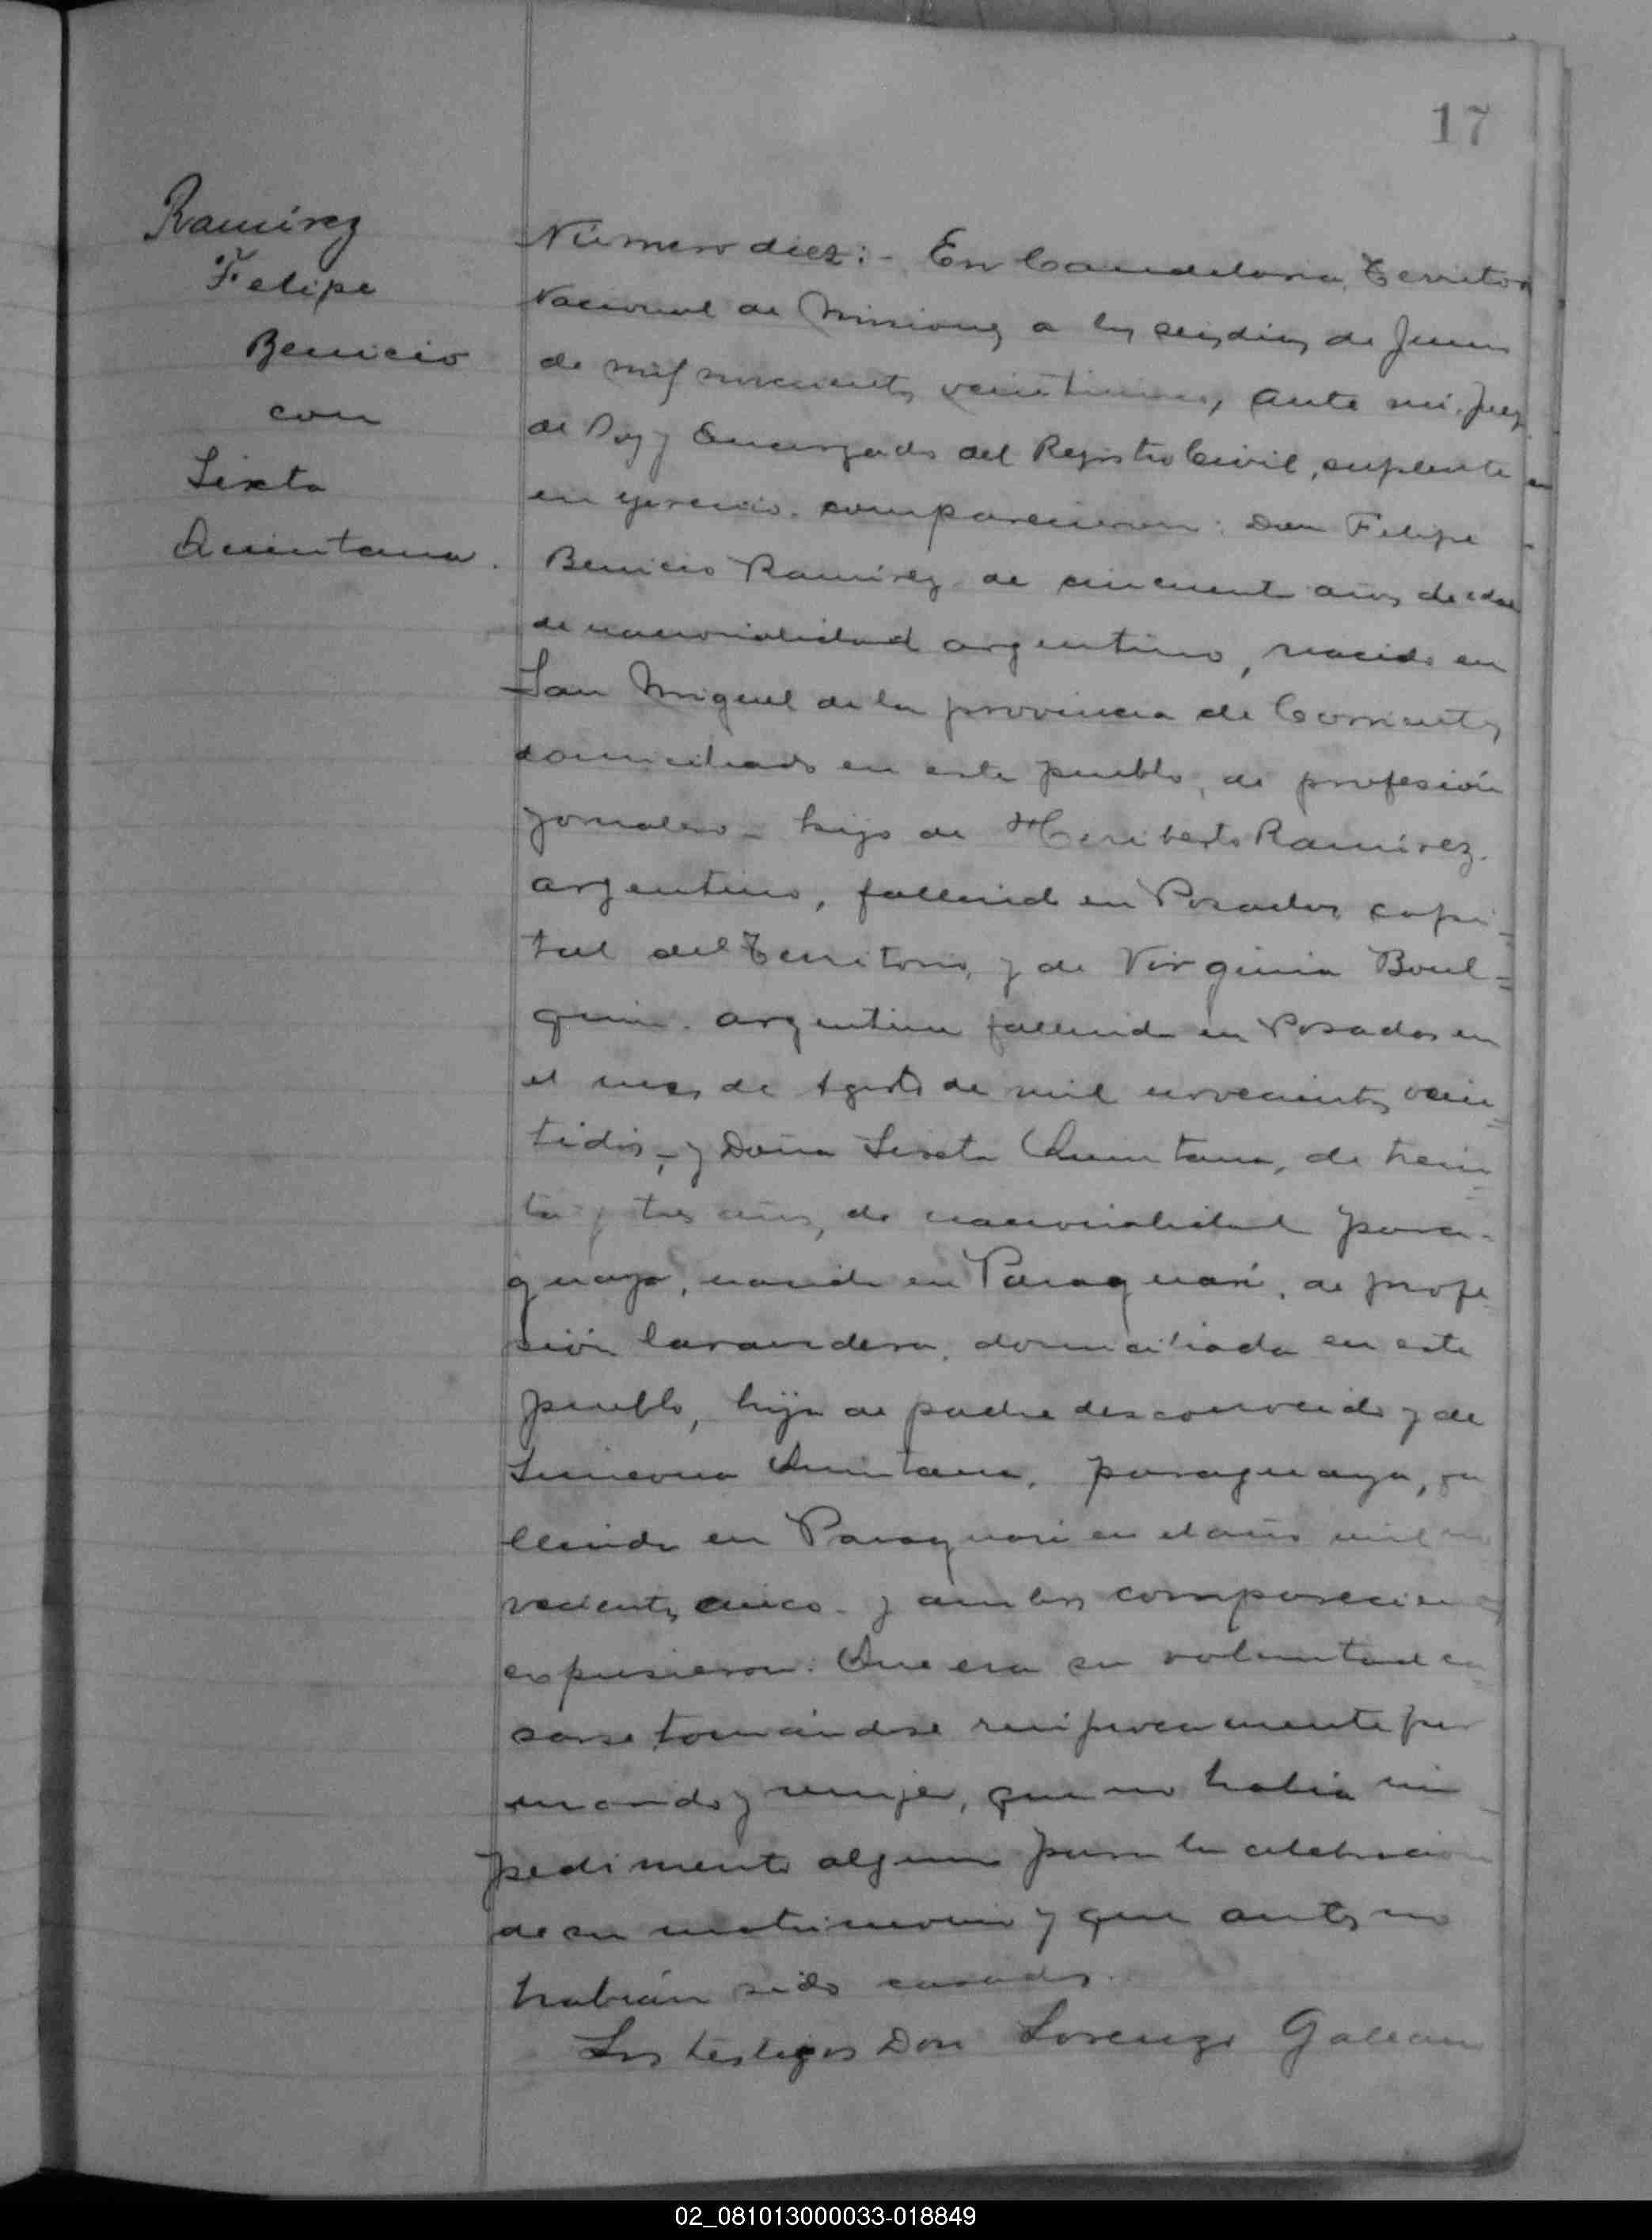 17
Ramírez
Felipe
Benicio
con
Sixta
Quintana.
Número diez:- En Candelaria, Territorio
Nacional de Misiones a los seis días de Junio
de mil novecientos, ante mi, Juez
de Paz y Encargado del Registro Civil, suplente
en ejercicio. comparecieron: Don Felipe
Benicio Ramírez de cincuenta años de edad
de nacionalidad argentino, nacido en
San Miguel de la provincia de Corrientes,
domiciliado en este pueblo, de profesión
jornalero - hijo de Heriberto Ramírez.
argentino, fallecido en Posadas capi-
tal del Territorio, y de Virginia
argentina fallecida en Posadas en
el mes de Agosto de mil novecientos vein-
tidós, y Doña Sixta Quintana, de trein-
ta y tres años, de nacionalidad para-
guaya, nacida en Paraguarí, de profe
sión lavandera, domiciliada en este
pueblo, hija de padre desconocido y de
Simeona Quintana, paraguaya, fa
llecida en Paraguarí en el año mil no
vecientos cinco. y ambos comparecientes
expusieron: Que era su voluntad ca
sarse tomándose recíprocamente por
marido y mujer, que no había im-
pedimento alguno para la celebración
de su matrimonio y que antes no
habían sido casados.
Los testigos Don Lorenzo Galeano
02_081013000033-018849